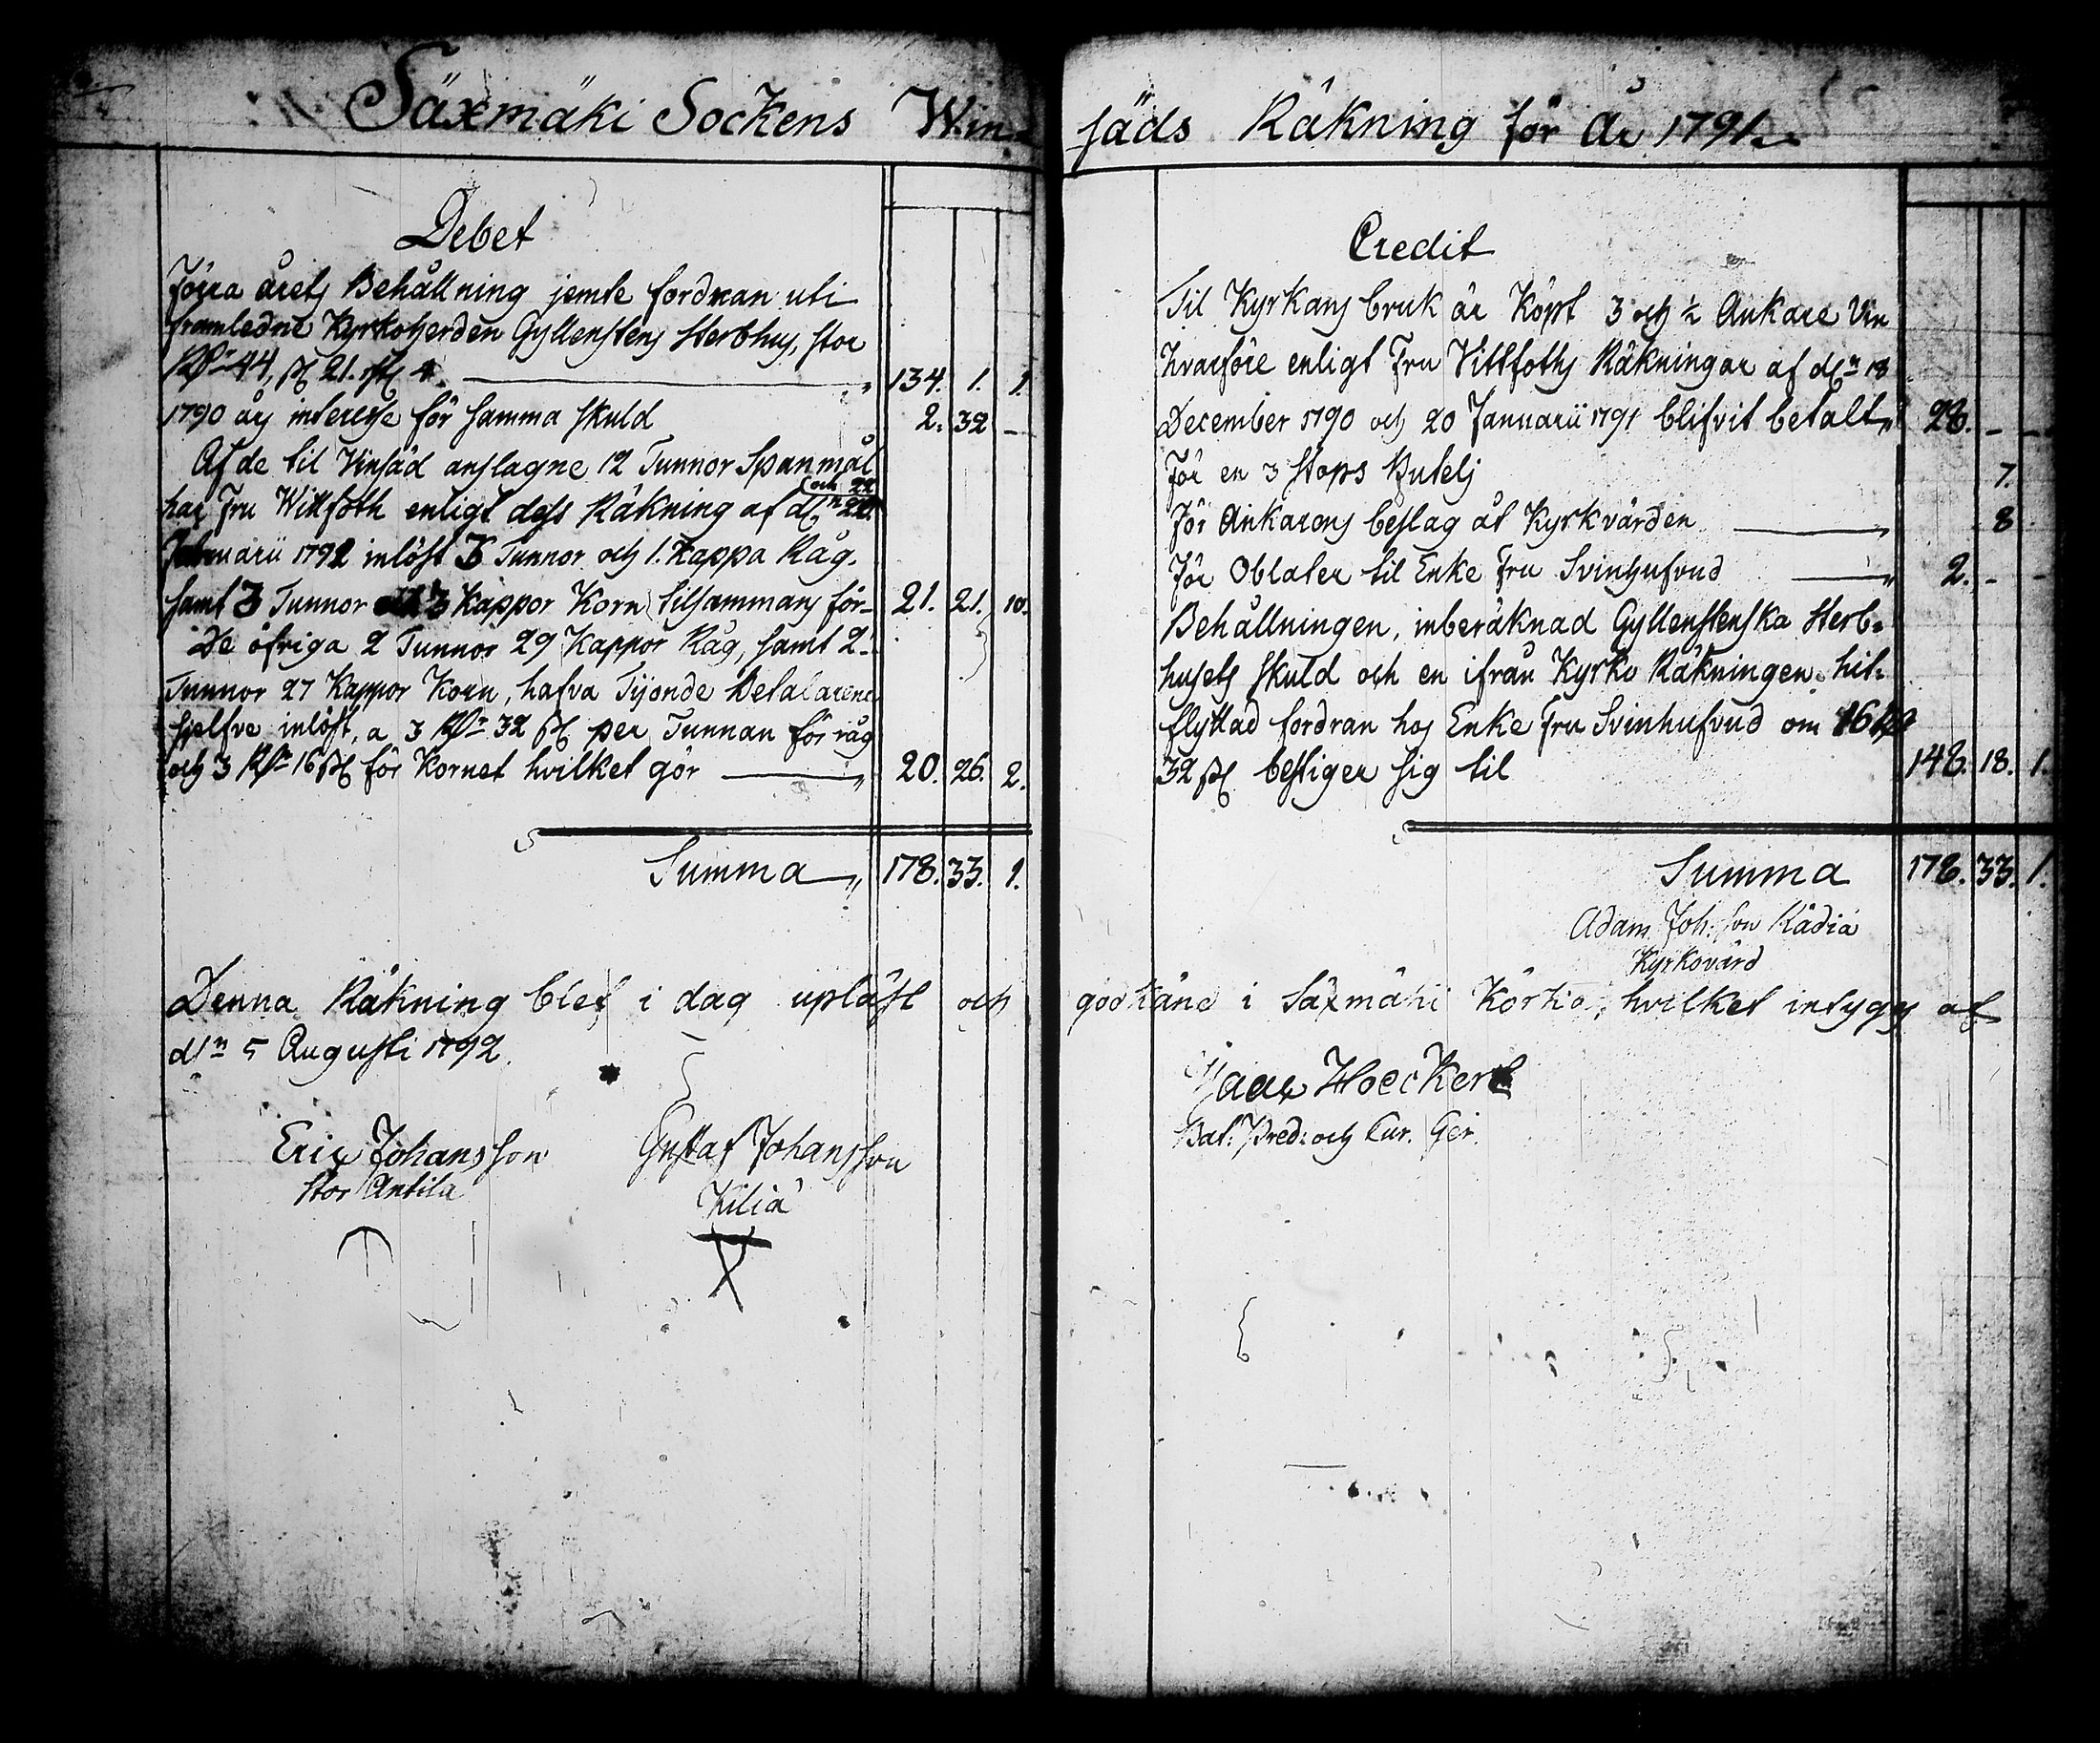 Säxmäki Sockens Win-
säds Räkning för År 1791
Debet
Förra årets Behållning jemte fordran uti
framledne Kyrkoherden Gyllenstens Sterbhus, stor
Rdr 44, ß 21. rst 4. 134. 1. 1
1790 års interesse för samma skuld 2. 32 -
Af de til Vinsäd anslagne 12 Tunnor Spanmål
och 22
har Fru Wittfoth enligt dess Räkning af dn 20
Januarii 1792 inlöst 3 Tunnor och 1. Kappa Råg.
samt 3 Tunnor 3 Kappor Korn tilsammans för 21. 21. 10.
De öfriga 2 Tunnor 29 Kappor Råg, samt 2
Tunnor 27 Kappor Korn, hafva Tijonde Betalarene
sjelfve inlöst, a 3 Rdr 32 ß per Tunnan för råg
och 3 Rdr 16 ß för Kornet hvilket gör 20. 26. 2.
Summa 178. 33. 1.
Credit
Til Kyrkans bruk är Köpt 3 och ½ Ankare Vin
hvarföre enligt Fru Vittfoths Räkningar af dn 18
December 1790 och 20 Januarii 1791 blifvit betalt 28. - -
För en 3 Stops Butelj 7.
För Ankarens beslag åt Kyrkvärden 8
För Oblater til Enke Fru Svinhufvud 2. - -
Behållningen, inberäknad Gyllenstenska Sterb-
husets skuld och en ifrån Kyrko Räkningen hit-
flyttad fordran hos Enke Fru Svinhufvud om 16 Rdr
32 ß bestiger sig til 148. 18. 1.
Summa 178. 33. 1.
Adam Joh:son Rädiä
Kyrkovärd
Denna Räkning blef i dag upläst och godkänd i Säxmäki Körkio, hvilket intygas af
dn 5 Augusti 1792.
Isaac Hoeckert
Bat: Pred: och Cur. Ger.
Eric Johansson
Stor Antila
Gustaf Johansson
Kiliä